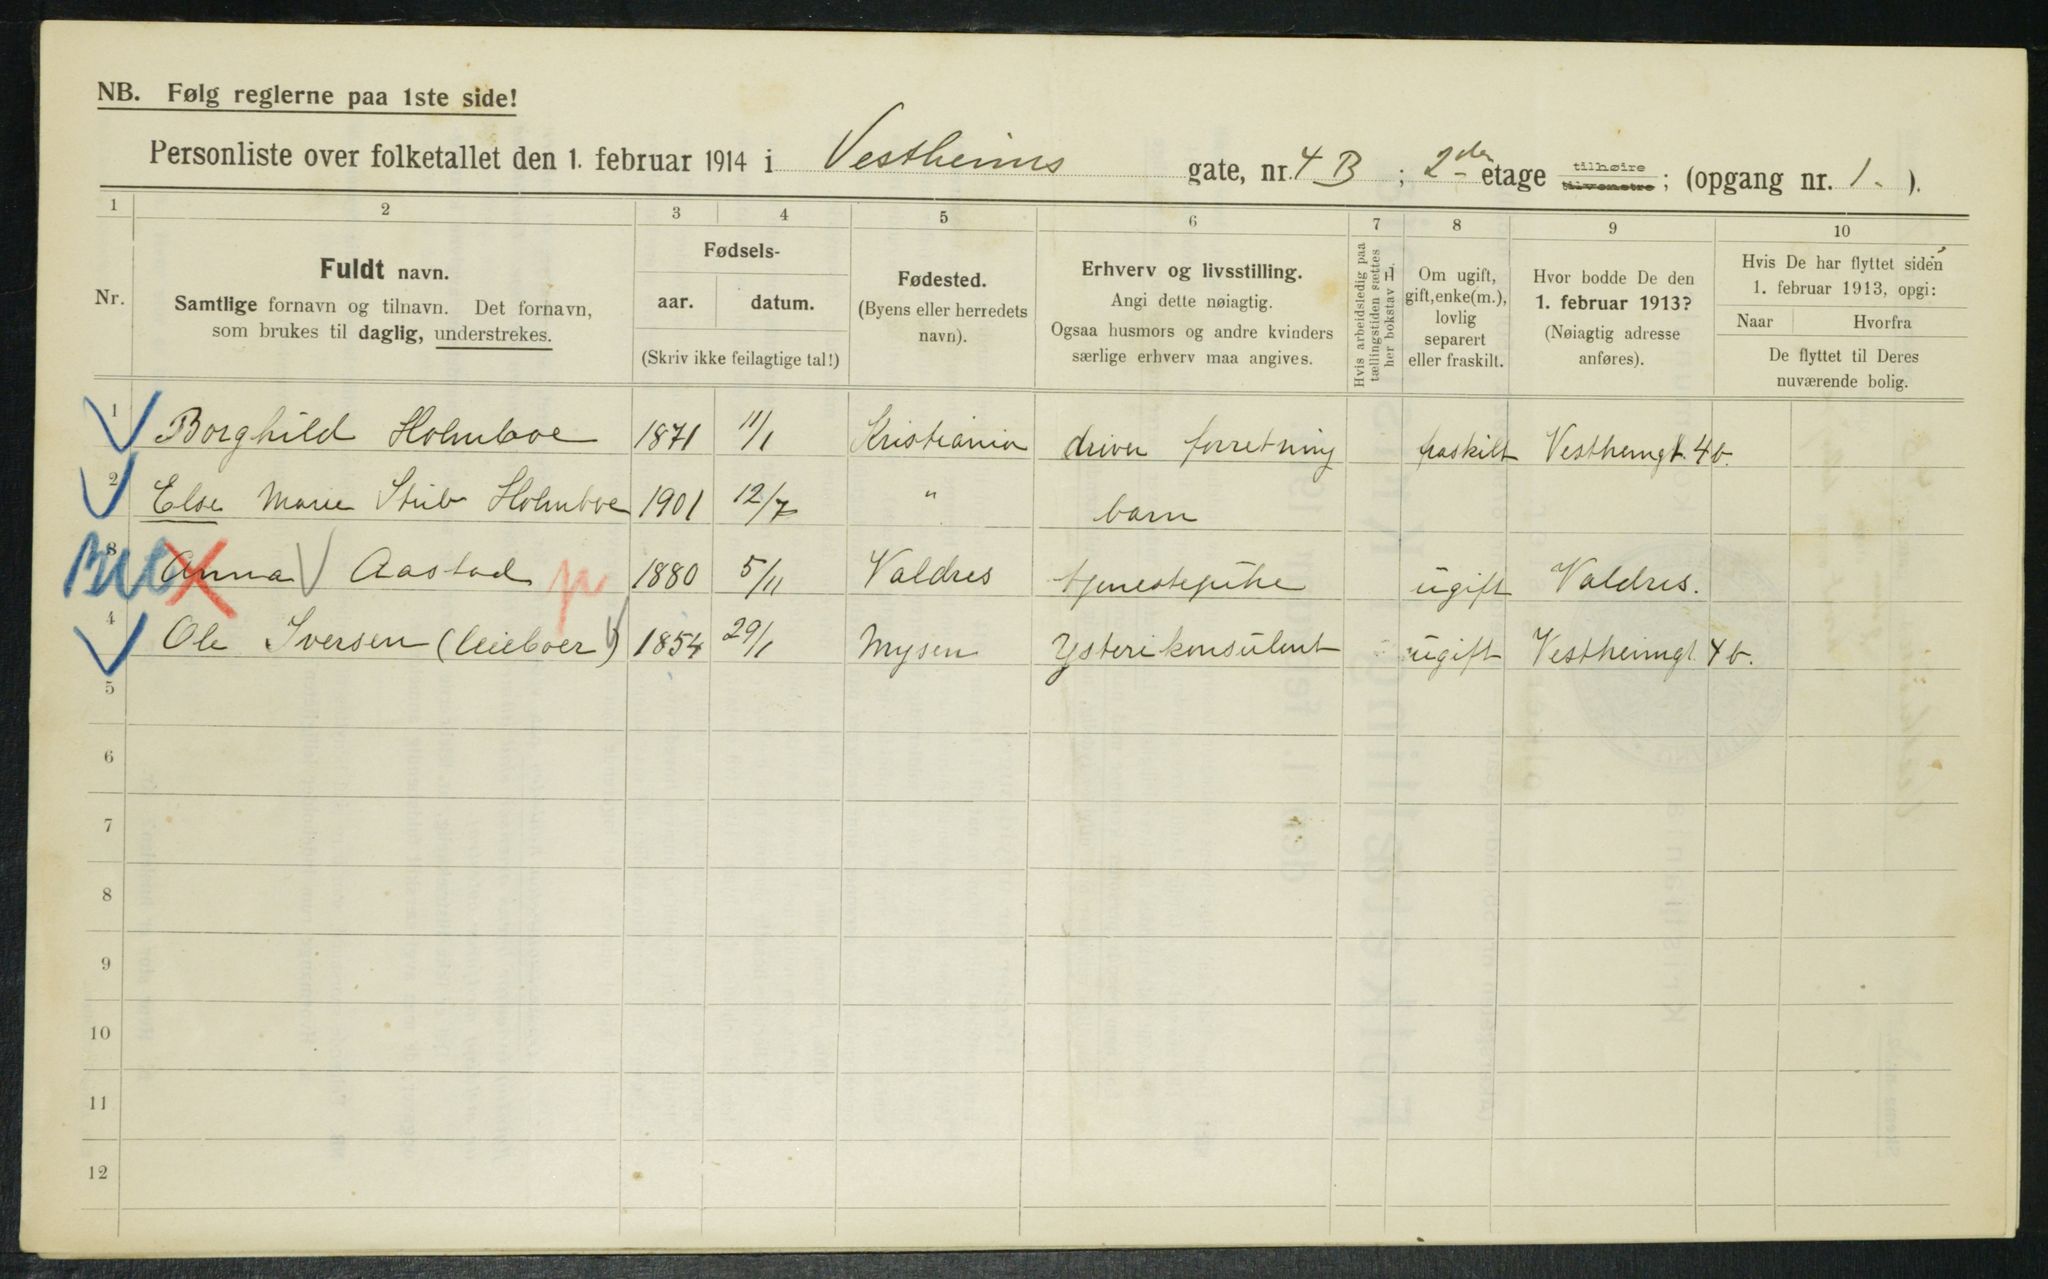 NB. Følg reglerne paa 1ste side!
Personliste over folketallet den 1. februar 1914 i Vestheims gate, nr. 4 B ; 2den etage tilhøire tilvenstre ; (opgang nr. 1. ).
1 2 3 4 5 6 7 8 9 10
Nr.
Fuldt navn.
Samtlige fornavn og tilnavn. Det fornavn,
som brukes til daglig, understrekes.
Fødsels-
aar. datum.
(Skriv ikke feilagtige tal!)
Fødested.
(Byens eller herredets
navn).
Erhverv og livsstilling.
Angi dette nøiagtig.
Ogsaa husmors og andre kvinders
særlige erhverv maa angives.
Hvis arbeidsledig paa
tællingstiden sættes
her bokstav L.
Om ugift,
gift, enke(m.),
lovlig
separert
eller fraskilt.
Hvor bodde De den
1. februar 1913?
(Nøiagtig adresse
anføres).
Hvis De har flyttet siden
1. februar 1913, opgi:
Naar Hvorfra
De flyttet til Deres
nuværende bolig.
1 Borghild Holmboe 1871 11/1 Kristiania driver forretning fraskilt Vestheimgt. 4b.
2 Else Marie Stub Holmboe 1901 12/7 " barn
3 Anna Aastad 1880 5/11 Valdres tjenestepike ugift Valdres.
4 Ole Iversen (leieboer) 1854 29/1 Mysen Ysterikonsulent ugift Vestheimgt. 4b.
5
6
7
8
9
10
11
12